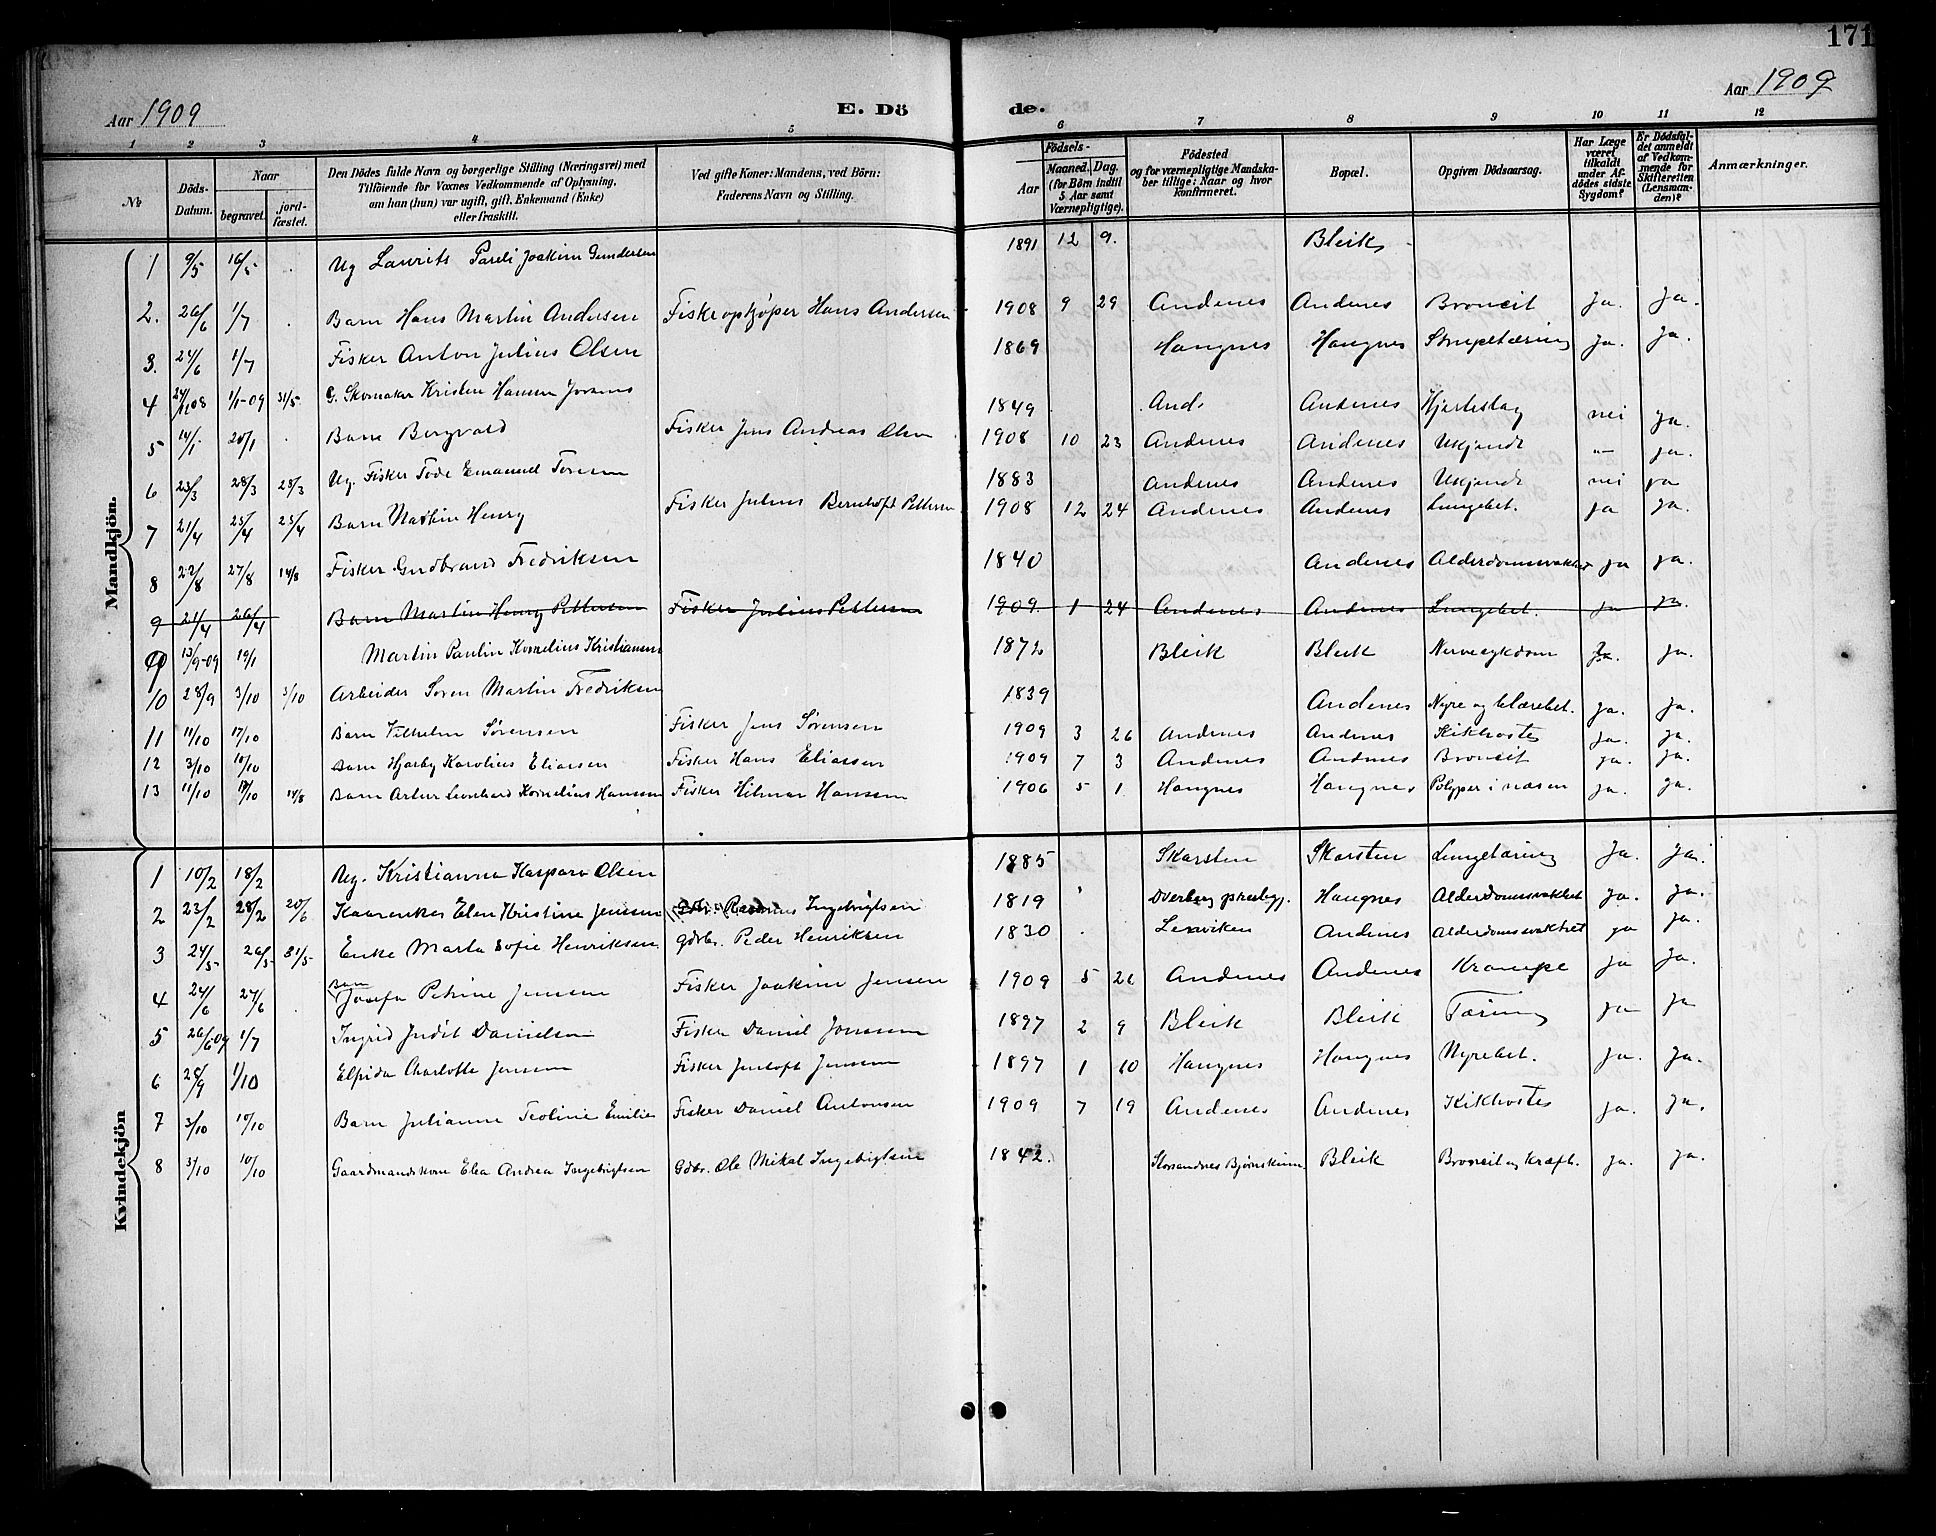 171
Aar 1909
E. Döde.
Aar 1909
1 2 3 4 5 6 7 8 9 10 11 12
№
Döds-Datum.
Naar
begravet.
jord-fæstet.
Den Dödes fulde Navn og borgerlige Stilling (Næringsvei) med Tilföiende for Voxnes Vedkommende af Oplysning, om han (hun) var ugift, gift, Enkemand (Enke) eller fraskilt.
Ved gifte Koner: Mandens, ved Börn: Faderens Navn og Stilling.
Födsels-
Aar
Maaned. Dag.
(for Börn indtil 5 Aar samt Værnepligtige).
Födested og for værnepligtige Mandskaber tillige: Naar og hvor konfirmeret.
Bopæl.
Opgiven Dödsaarsag.
Har Læge været tilkaldt under Afdödes sidste Sygdom?
Er Dödsfaldet anmeldt af Vedkommende for Skifteretten (Lensmanden)?
Anmærkninger.
Mandkjön.
1 9/5 16/5 Ug Laurits Pareli Joakim Gundersen 1891 12 9. Bleik
2. 26/6 1/7 Barn Hans Martin Andersen Fiskeopkjøper Hans Andersen 1908 9 29 Andenes Andenes Broncit Ja. Ja.
3. 24/6 1/7 Fisker Anton Julius Olsen 1869 Haugnes Haugnes Strupetæring Ja. Ja.
4 1/1-09 31/5 G. Skomaker Kristen Hansen 1849 And. Andenes Hjerteslag nei ja.
5 14/1 20/1 Barn Bergvald Fisker Jens Andreas Olsen 1908 10 23 Andenes Andenes Ukjendt "- ja.
6 23/3 28/3 28/3 Ug. Fisker Tode Emanuel 1883 Andenes Andenes Ukjendt nei ja
7 21/4 25/4 25/4 Barn Martin Henry Fisker Julius Bernhoft Pettersen 1908 12 24 Andenes Andenes Lungebet. ja ja.
8 22/8 27/8 14/8 Fisker Gudbrand Fredriksen 1840 Andenes Alderdomssvakhet ja ja.
9 21/4 26/4 Barn Martin Henry Pettersen Fisker Julius Pettersen 1909. 1 24 Andenes Andenes Lungebet. ja ja.
9 13/9-09 19/1 Martin Paulin Kornelius Kristiansen 1872 Bleik Bleik Nervesykdom Ja. ja.
10 28/9 3/10 3/10 Arbeider Søren Martin Fredriksen 1839 Andenes Nyre og blærebet. ja. ja.
11 11/10 17/10 Barn Vilhelm Sørensen Fisker Jens Sørensen 1909 3 26 Andenes Andenes Kikhoste ja. ja.
12 3/10 10/10 Barn Hjarby Karolius Eliassen Fisker Hans Eliassen 1909 7 3 Andenes Andenes Broncit ja. ja.
13 11/10 17/10 14/8 Barn Artur Leonhard Kornelius Hansen Fisker Hilmar Hansen 1906 5 1. Haugnes Haugnes Polyper i næsen ja. ja.
Kvindekjön
1 10/2 18/2 Ug. Kristianna Kaspara Olsen 1885 Skarsten Skarsten Lungetæring Ja. Ja.
2 23/2 28/2 20/6 Kaarenke Elen Kristine Jensen Ingebrigtsen 1819 Dverberg præstegj. Haugnes Alderdomssvakhet Ja. Ja.
3 24/5 26/5 31/5 Enke Marta Sofie Henriksen gdbr. Peder Henriksen 1830 Lenviken Andenes Alderdomssvakhet ja ja.
4 24/6 27/6 Barn Josefa Petrine Jensen Fisker Joakim Jensen 1909 5 26 Andenes Andenes Krampe ja ja.
5 26/6-09 1/7 Ingrid Judit Danielsen Fisker Daniel Jonassen 1897 2 9 Bleik Bleik Tæring ja ja
6 28/9 1/10 Elfrida Charlotte Jensen Fisker Jentoft Jensen 1897 1 10 Haugnes Haugnes Nyrebet. ja. ja.
7 3/10 10/10 Barn Julianne Teoline Emilie Fisker Daniel Antonsen 1909 7 19 Andenes Andenes Kikhoste ja. ja.
8 3/10 10/10 Gaardmandskone Elea Andrea Ingebrigtsen Gdbr. Ole Mikal Ingebrigtsen 1842. Storsandnes Bjørnskinn Bleik Broncit og Kræft. ja. ja.